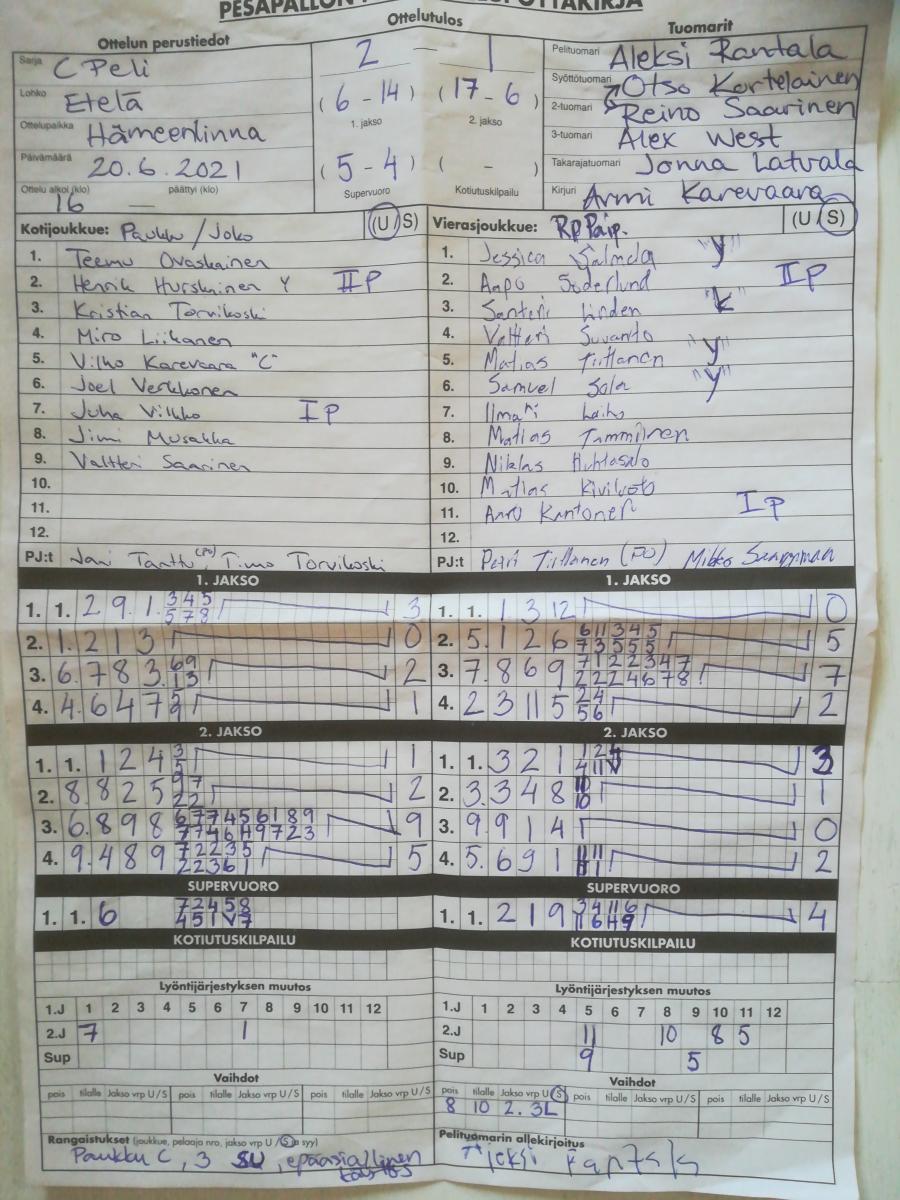 Ottelun perustiedot
Ottelutulos
Tuomarit
Sarja C Peli
2 — 1
Pelituomari Aleksi Rantala
Lohko Etelä
(6 - 14) (17 - 6)
Syöttötuomari Otso Kortelainen
1. jakso 2. jakso
2-tuomari Reino Saarinen
Ottelupaikka Hämeenlinna
3-tuomari Alex West
Päivämäärä 20.6.2021
(5 - 4) ( - )
Takarajatuomari Jonna Latvala
Ottelu alkoi (klo) päättyi (klo)
16 —
Supervuoro Kotiutuskilpailu
Kirjuri Armi Karevaara
Kotijoukkue: Paukku / Joko (U / S)
1. Teemu Ovaskainen
2. Henrik Hurskainen Y II P
3. Kristian Torvikoski
4. Miro Liikanen
5. Vilho Karevaara "C"
6. Joel Verkkonen
7. Juha Vilkko I P
8. Jimi Musakka
9. Valtteri Saarinen
10.
11.
12.
PJ:t Jani Tanttu (PJ), Timo Torvikoski
Vierasjoukkue: (U / S)
1. Jessica "Y"
2. Aapo Söderlund II P
3. Santeri Linden "K"
4. Valtteri Suvanto
5. Matias Tiittanen "Y"
6. Samuel Sola "Y"
7. Ilmari Laiho
8. Matias Tamminen
9. Niklas Huhtasalo
10. Matias
11. I P
12.
PJ:t Petri Tiittanen (PJ) Mikko
1. JAKSO
1. 1. 2 9 1. 3 4 5 3
5 7 8
2. 1. 2 1 3 0
3. 6. 7 8 3. 6 9 2
1 3
4. 4. 6 4 7 1
2. JAKSO
1. 1. 1 2 4 3 1
5
2. 8. 8 2 5 9 7 2
2 2
3. 6. 8 9 8 9
4. 9. 4 8 9 7 2 2 3 5 5
2 2 3 6 1
SUPERVUORO
1. 1. 6 7 2 4 5 8
4 5 1 V 7
KOTIUTUSKILPAILU
1. JAKSO
1. 1. 1 3 12 0
2. 5. 1 2 6 6 11 3 4 5 5
7 3 5 5 5
3. 7. 8 6 9 7 1 2 2 3 4 7 7
2 2 2 4 6 7 8
4. 2 3 11 5 2 4 2
5 6
2. JAKSO
1. 1. 3 2 1 3
2. 3. 3 4 8 10 1
10
3. 9. 9 1 4 0
4. 5. 6 9 1 2
SUPERVUORO
1. 1. 2 1 9 3 4 11 6 4
KOTIUTUSKILPAILU
Lyöntijärjestyksen muutos
1.J 1 2 3 4 5 6 7 8 9 10 11 12
2.J 7 1
Sup
Vaihdot
pois tilalle Jakso vrp U / S pois tilalle Jakso vrp U / S pois tilalle Jakso vrp U / S
Rangaistukset (joukkue, pelaaja nro, jakso vrp U / S ja syy)
Paukku C, 3 SU, epäasiallinen
käytös
Lyöntijärjestyksen muutos
1.J 1 2 3 4 5 6 7 8 9 10 11 12
2.J 11 10 8 5
Sup 9 5
Vaihdot
pois tilalle Jakso vrp U / S pois tilalle Jakso vrp U / S pois tilalle Jakso vrp U / S
8 10 2. 3L
Pelituomarin allekirjoitus